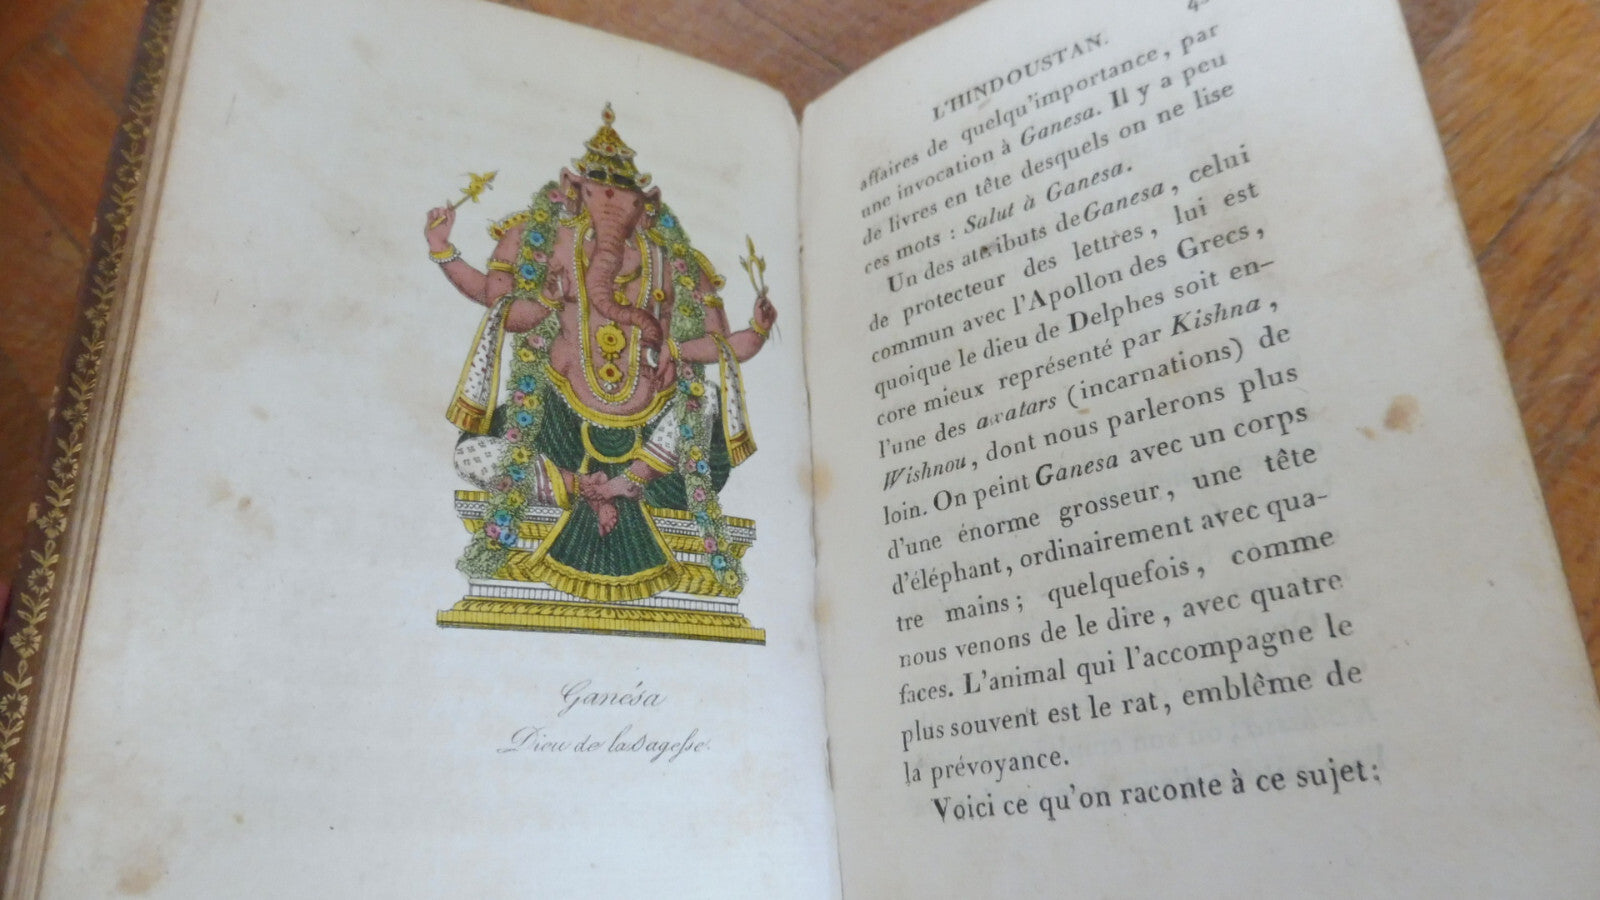 Ganésa
Dieu de la Sagesse.
L'HINDOUSTAN.
affaires de quelqu'importance, par
une invocation à Ganesa. Il y a peu
de livres en tête desquels on ne lise
ces mots : Salut à Ganesa.
Un des attributs de Ganesa, celui
de protecteur des lettres, lui est
commun avec l'Apollon des Grecs,
quoique le dieu de Delphes soit en-
core mieux représenté par Kishna,
l'une des avatars (incarnations) de
Wishnou, dont nous parlerons plus
loin. On peint Ganesa avec un corps
d'une énorme grosseur, une tête
d'éléphant, ordinairement avec qua-
tre mains; quelquefois, comme
nous venons de le dire, avec quatre
faces. L'animal qui l'accompagne le
plus souvent est le rat, emblême de
la prévoyance.
Voici ce qu'on raconte à ce sujet: